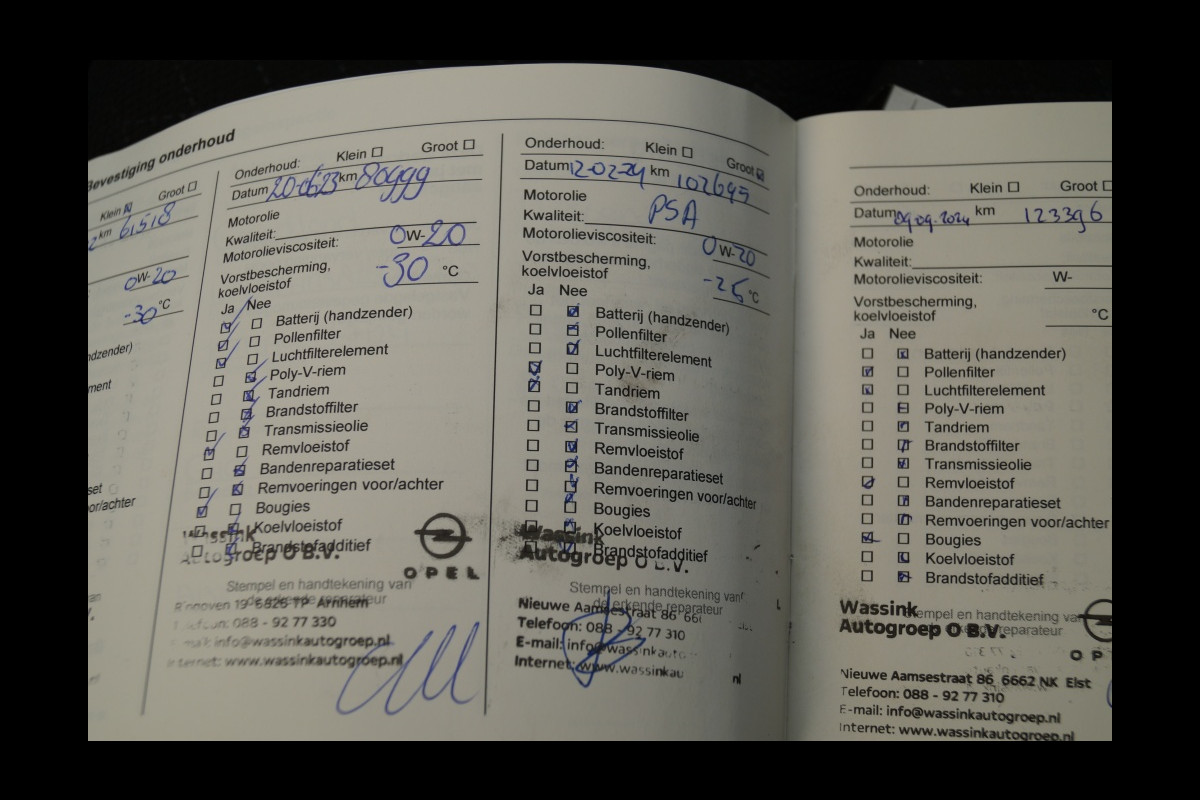 Bevestiging onderhoud
Klein Groot
km 61518
0W-20
-30 °C
ndzender)
ment
set
or/achter
Onderhoud: Klein Groot
Datum 20-0623 km 80999
Motorolie
Kwaliteit:
Motorolieviscositeit: 0W-20
Vorstbescherming,
koelvloeistof -30 °C
Ja Nee
Batterij (handzender)
Pollenfilter
Luchtfilterelement
Poly-V-riem
Tandriem
Brandstoffilter
Transmissieolie
Remvloeistof
Bandenreparatieset
Remvoeringen voor/achter
Bougies
Koelvloeistof
Brandstofadditief
Wassink
Autogroep O B.V.
OPEL
Stempel en handtekening van
de erkende reparateur
6826 TP Arnhem
088 - 92 77 330
info@wassinkautogroep.nl
Internet: www.wassinkautogroep.nl
Onderhoud: Klein Groot
Datum 12-02-24 km 102695
Motorolie
Kwaliteit: PSA
Motorolieviscositeit: 0W-20
Vorstbescherming,
koelvloeistof -26 °C
Ja Nee
Batterij (handzender)
Pollenfilter
Luchtfilterelement
Poly-V-riem
Tandriem
Brandstoffilter
Transmissieolie
Remvloeistof
Bandenreparatieset
Remvoeringen voor/achter
Bougies
Koelvloeistof
Brandstofadditief
Wassink
Autogroep O B.V.
Stempel en handtekening van
de erkende reparateur
Nieuwe Aamsestraat 86 66
Telefoon: 088 - 92 77 310
E-mail: info@wassinkauto
Internet: www.wassinkau nl
Onderhoud: Klein Groot
Datum 09.09.2024 km 123396
Motorolie
Kwaliteit:
Motorolieviscositeit: W-
Vorstbescherming,
koelvloeistof °C
Ja Nee
Batterij (handzender)
Pollenfilter
Luchtfilterelement
Poly-V-riem
Tandriem
Brandstoffilter
Transmissieolie
Remvloeistof
Bandenreparatieset
Remvoeringen voor/achter
Bougies
Koelvloeistof
Brandstofadditief
Wassink
Autogroep O B.V.
Stempel en handtekening van
de erkende reparateur
OP
Nieuwe Aamsestraat 86 6662 NK Elst
Telefoon: 088 - 92 77 310
E-mail: info@wassinkautogroep.nl
Internet: www.wassinkautogroep.nl